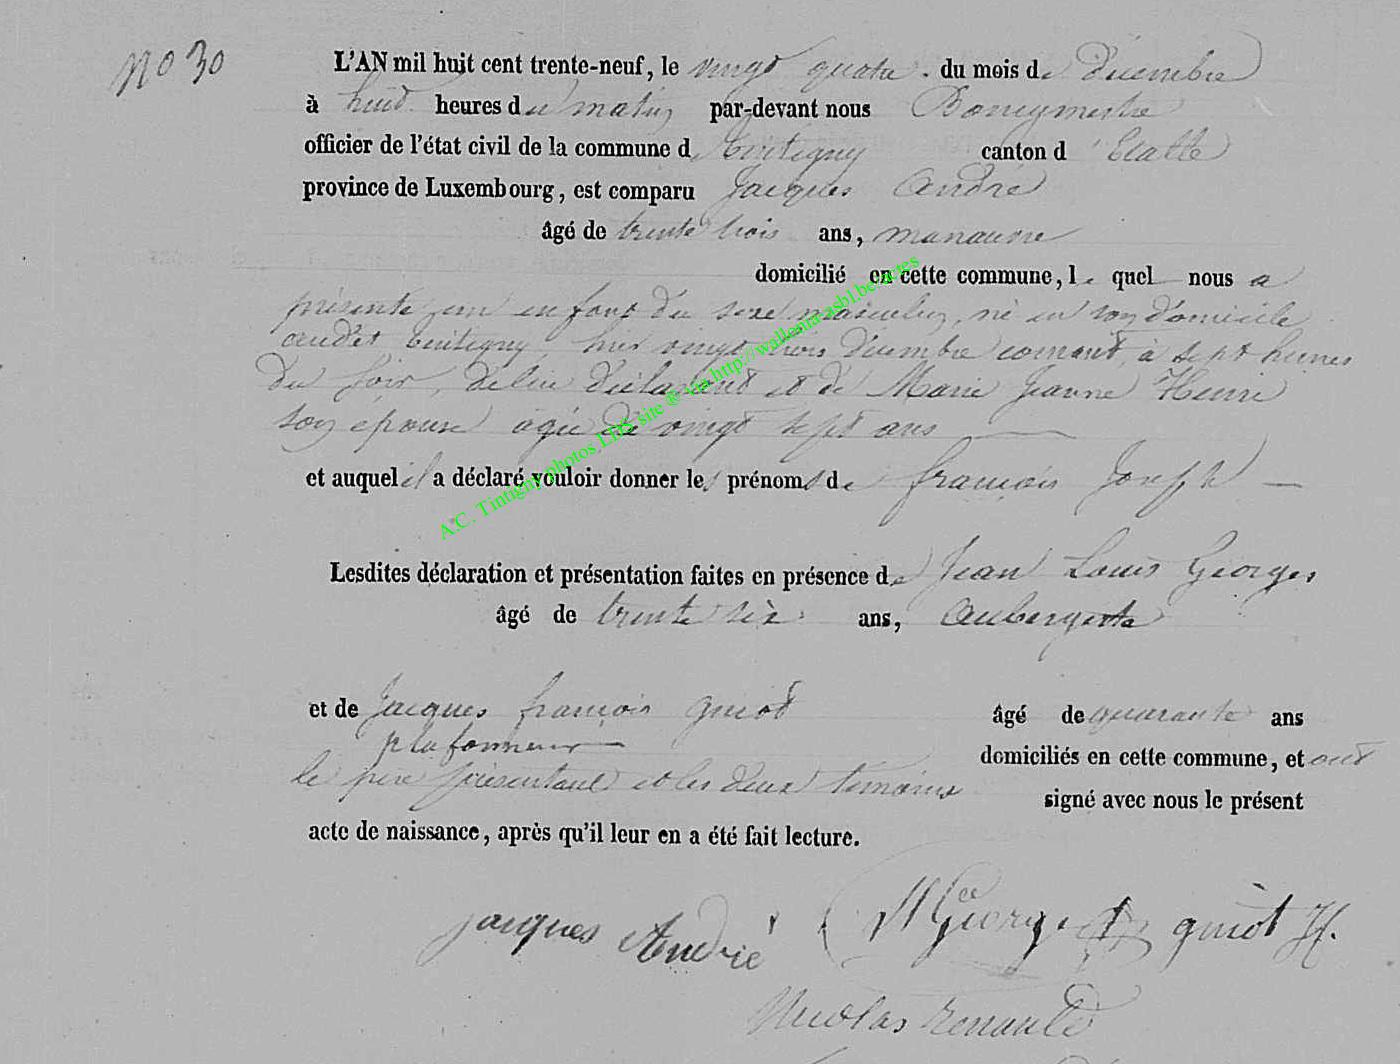 No 30
L'AN mil huit cent trente-neuf, le vingt quatre du mois de Décembre
à huit heures du matin par-devant nous Bourgmestre
officier de l'état civil de la commune de Tintigny canton d'Etalle
province de Luxembourg, est comparu Jacques André
âgé de trente trois ans, manœuvre
domicilié en cette commune, le quel nous a
présenté un enfant du sexe masculin, né en son domicile
audit Tintigny, hier vingt trois Décembre courant, à sept heures
du soir, de lui déclarant et de Marie Jeanne Henri
son épouse agée de vingt sept ans
et auquel il a déclaré vouloir donner les prénoms de françois Joseph
Lesdites déclaration et présentation faites en présence de Jean Louis Georges
âgé de trente six ans, Aubergiste
et de Jacques françois guiot âgé de quarante ans
plafonneur domiciliés en cette commune, et ont
le père présentant et les deux témoins signé avec nous le présent
acte de naissance, après qu'il leur en a été fait lecture.
jacques André Georges guiot Jf.
Nicolas Renauld
A.C. Tintigny photos LDS site ® via http://wallonia-asbl.be/actes